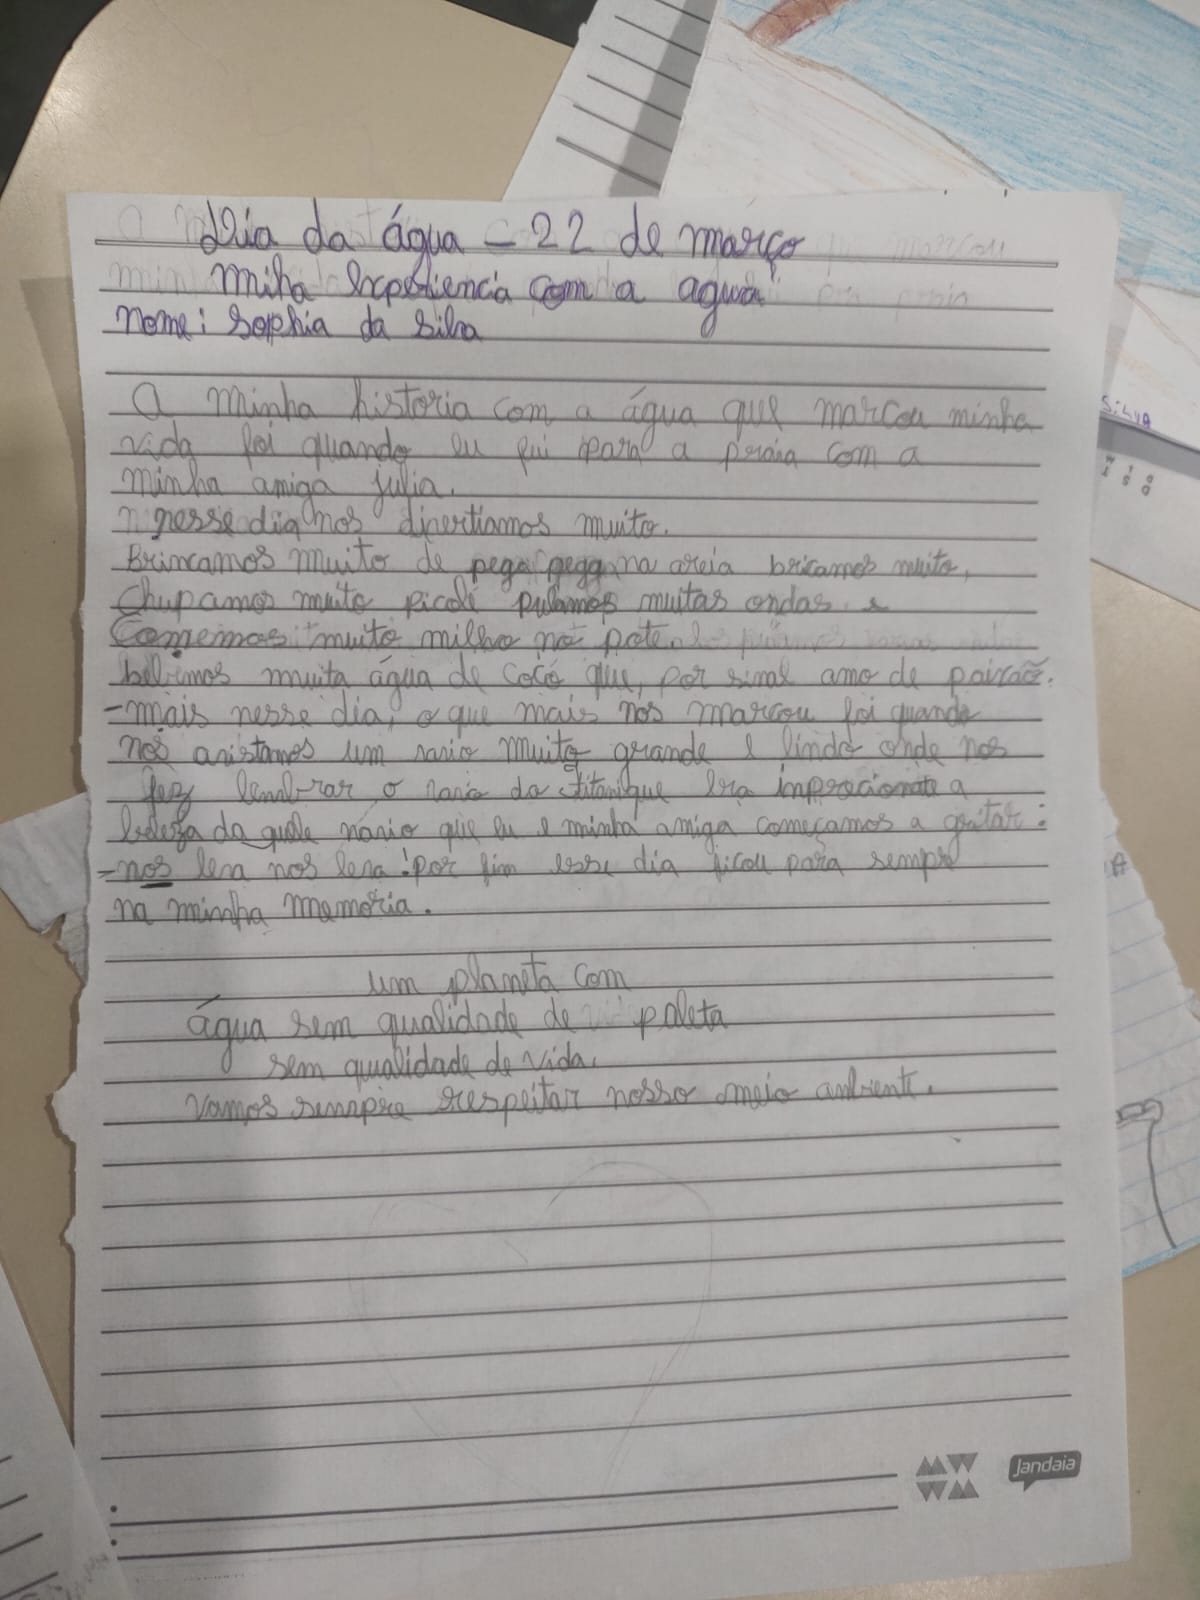 Dia da água - 22 de março
miha Experiencia com a agua
Nome: Sophia da Silva
A minha historia com a água que marcou minha
vida foi quando eu fui para a praia com a
minha amiga julia.
nesse dia nos divertiamos muito.
Brincamos muito de pega pega na areia bricamos muito,
Chupamos muito picolé pulamos muitas ondas e
Comemos muito milho no pote.
bebemos muita água de cocô que, por sinal amo de paixão.
-mais nesse dia, o que mais nos marcou foi quando
nos avistamos um navio muito grande e lindo onde nos
fez lembrar o navio do titanique Era imprecionate a
beleza da quele navio que eu e minha amiga começamos a gritar:
-nos leva nos leva! por fim esse dia ficou para sempre
na minha memoria.
um planeta com
água sem qualidade de paleta
sem qualidade de vida.
Vamos sempre respeitar nosso meio ambiente.
SILVA
Jandaia